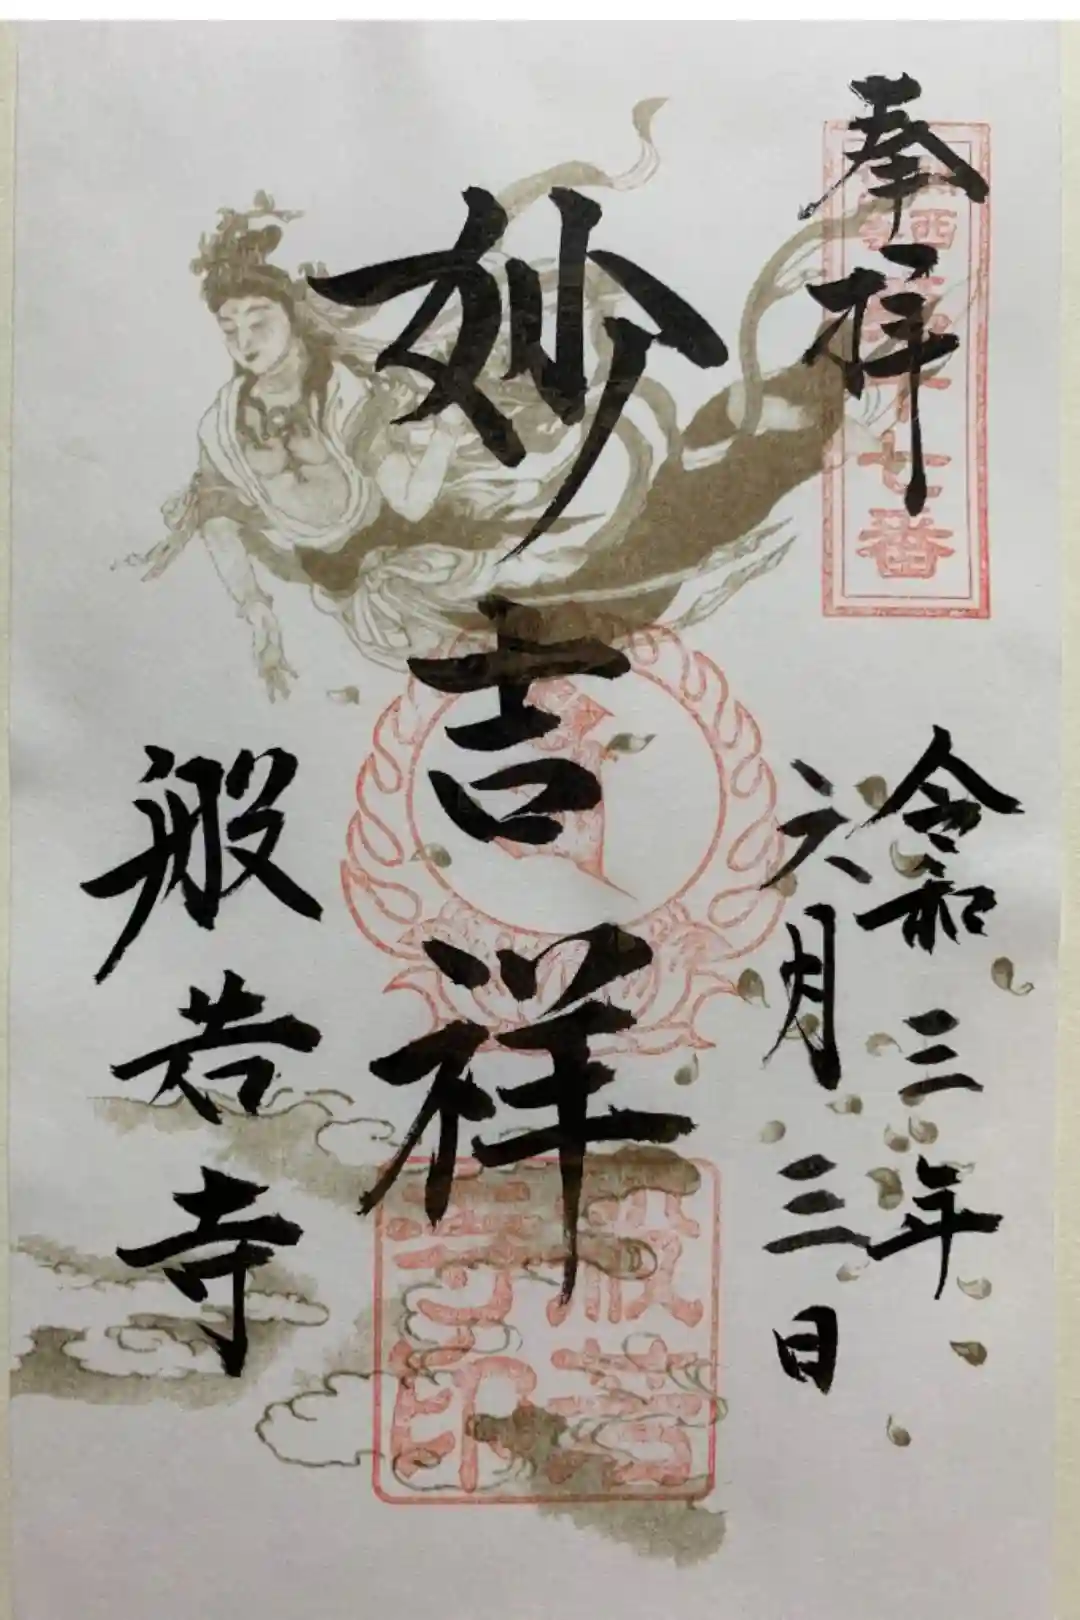 奉拝
令和三年
六月三日
妙吉祥
般若寺
七番
般若
寺印